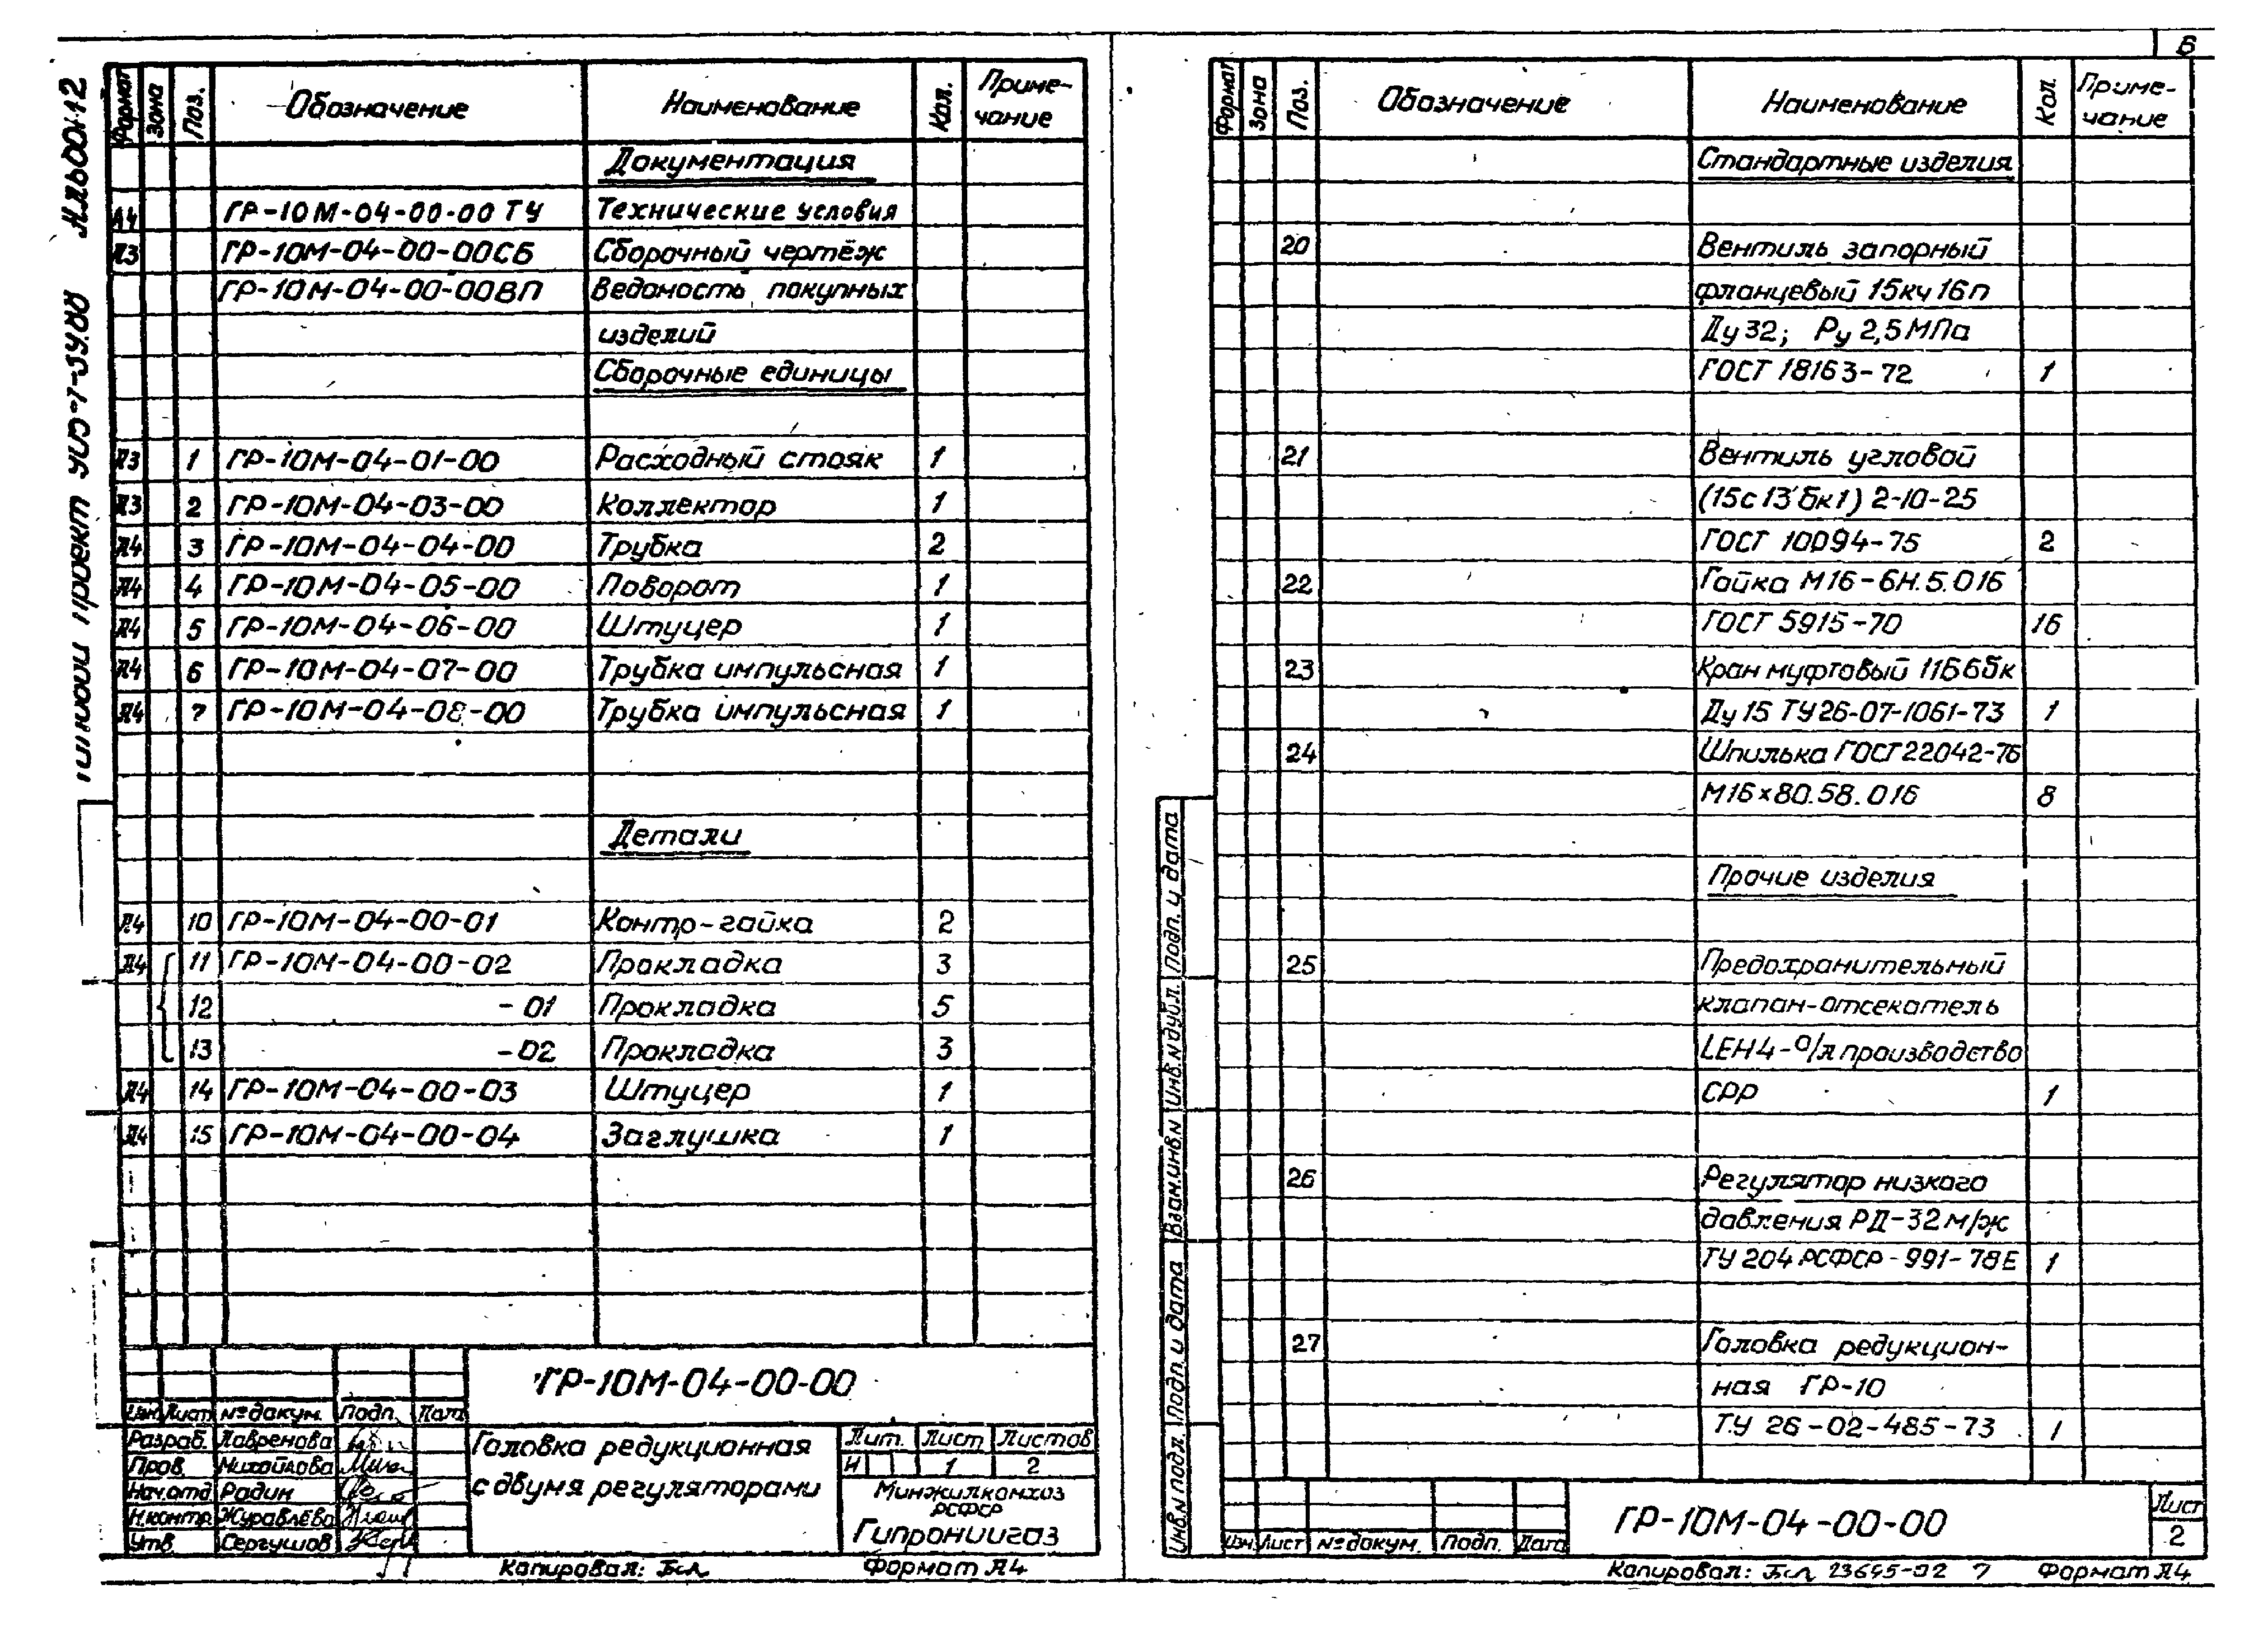 Типовой проект УИ5-1-39.88 Альбом 2
Формат Зона Поз. Обозначение Наименование Кол. Приме-
чание
Документация
А4 ГР-10М-04-00-00ТУ Технические условия
А3 ГР-10М-04-00-00СБ Сборочный чертёж
ГР-10М-04-00-00ВП Ведомость покупных
изделий
Сборочные единицы
А3 1 ГР-10М-04-01-00 Расходный стояк 1
А3 2 ГР-10М-04-03-00 Коллектор 1
А4 3 ГР-10М-04-04-00 Трубка 2
А4 4 ГР-10М-04-05-00 Поворот 1
А4 5 ГР-10М-04-06-00 Штуцер 1
А4 6 ГР-10М-04-07-00 Трубка импульсная 1
А4 7 ГР-10М-04-08-00 Трубка импульсная 1
Детали
А4 10 ГР-10М-04-00-01 Контр-гайка 2
А4 11 ГР-10М-04-00-02 Прокладка 3
12 -01 Прокладка 5
13 -02 Прокладка 3
А4 14 ГР-10М-04-00-03 Штуцер 1
А4 15 ГР-10М-04-00-04 Заглушка 1
ГР-10М-04-00-00
Изм Лист № докум. Подп. Дата
Разраб. Лавренова
Пров. Михайлова
Нач.отд Радин
Н.контр. Журавлёва
Утв. Сергушов
Головка редукционная
с двумя регуляторами
Лит. Лист Листов
И 1 2
Минжилкомхоз
РСФСР
Гипрониигаз
Копировал: Формат А4
6
Формат Зона Поз. Обозначение Наименование Кол. Приме-
чание
Стандартные изделия
20 Вентиль запорный
фланцевый 15кч16п
Ду 32; Ру 2,5МПа
ГОСТ 18163-72 1
21 Вентиль угловой
(15с13бк1) 2-10-25
ГОСТ 10094-75 2
22 Гайка М16-6Н.5.016
ГОСТ 5915-70 16
23 Кран муфтовый 11Б6бк
Ду 15 ТУ26-07-1061-73 1
24 Шпилька ГОСТ22042-76
М16×80.58.016 8
Прочие изделия
25 Предохранительный
клапан-отсекатель
LEH4-0/л производство
СРР 1
26 Регулятор низкого
давления РД-32м/ж
ТУ 204 РСФСР-991-78Е 1
27 Головка редукцион-
ная ГР-10
ТУ 26-02-485-73 1
Инв.№ подл. Подп. и дата Взам.инв.№ Инв.№ дубл. Подп. и дата
Изм Лист № докум. Подп. Дата
ГР-10М-04-00-00
Лист
2
Копировал: 23645-02 7 Формат А4